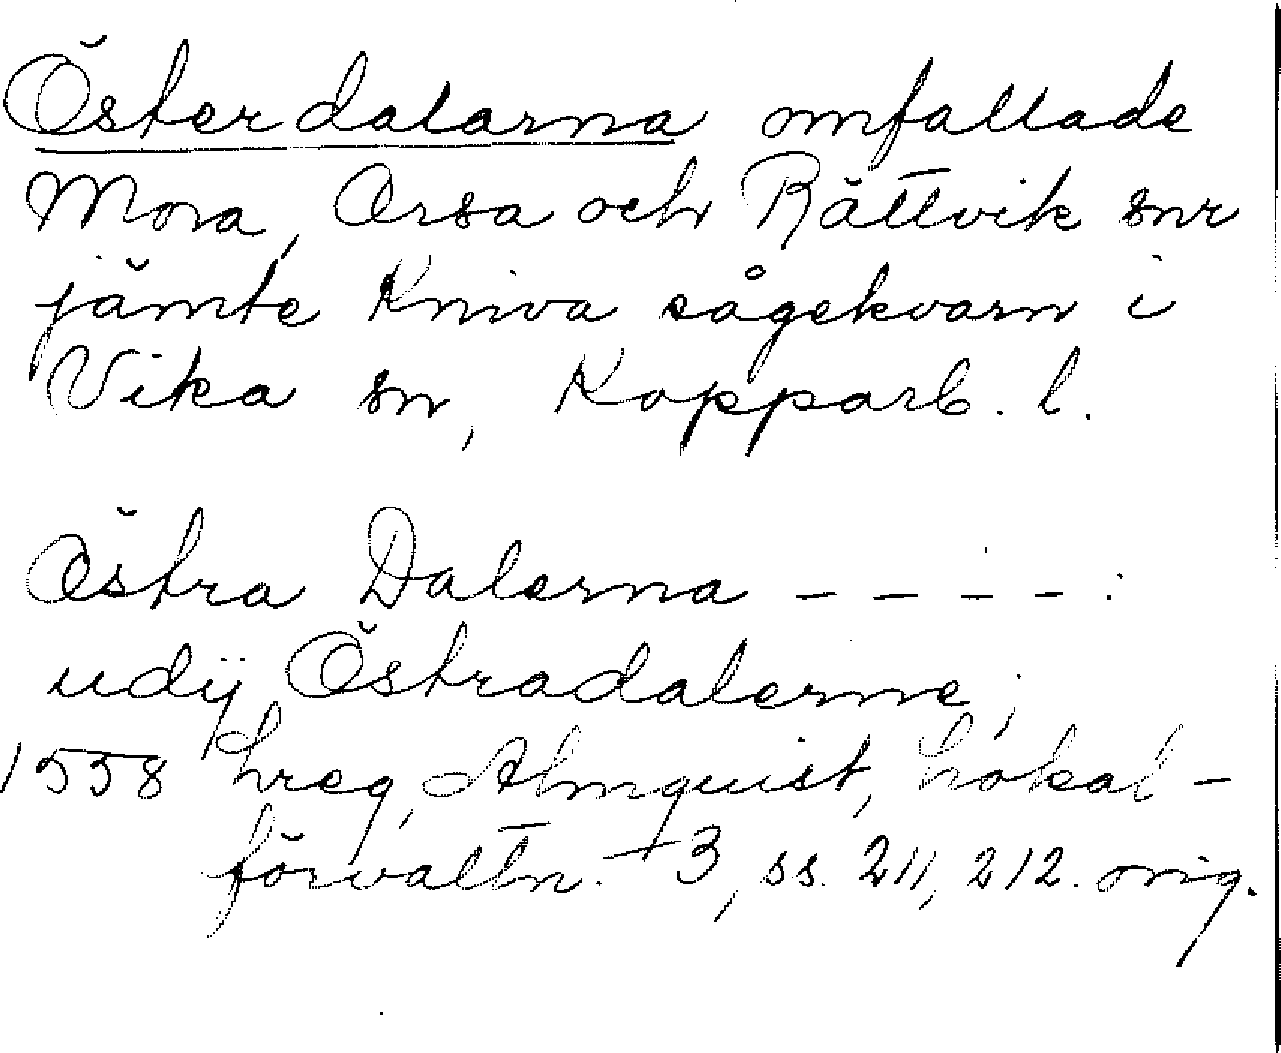 Österdalarna omfattade
Mora, Orsa och Rättvik snr
jämte Kniva sågekvarn i
Vika sn, Kopparb. l.
Östra Dalerna - - - - :
udij Östradalerne;
1558 Lreg, Almquist, Lokal-
förvaltn. 3, ss. 211, 212. orig.